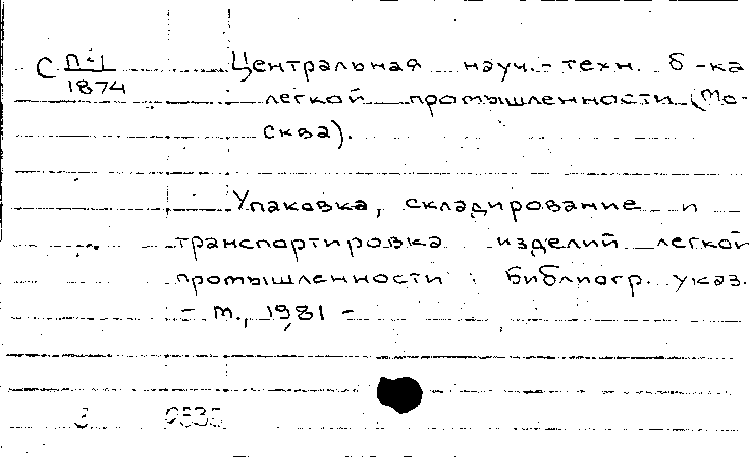 С П-1 Центральная науч.-техн. б-ка
1874 легкой промышленности (Мо-
сква).
Упаковка, складирование и
транспортировка изделий легкой
промышленности : Библиогр. указ.
- М., 1981 -
3 9535